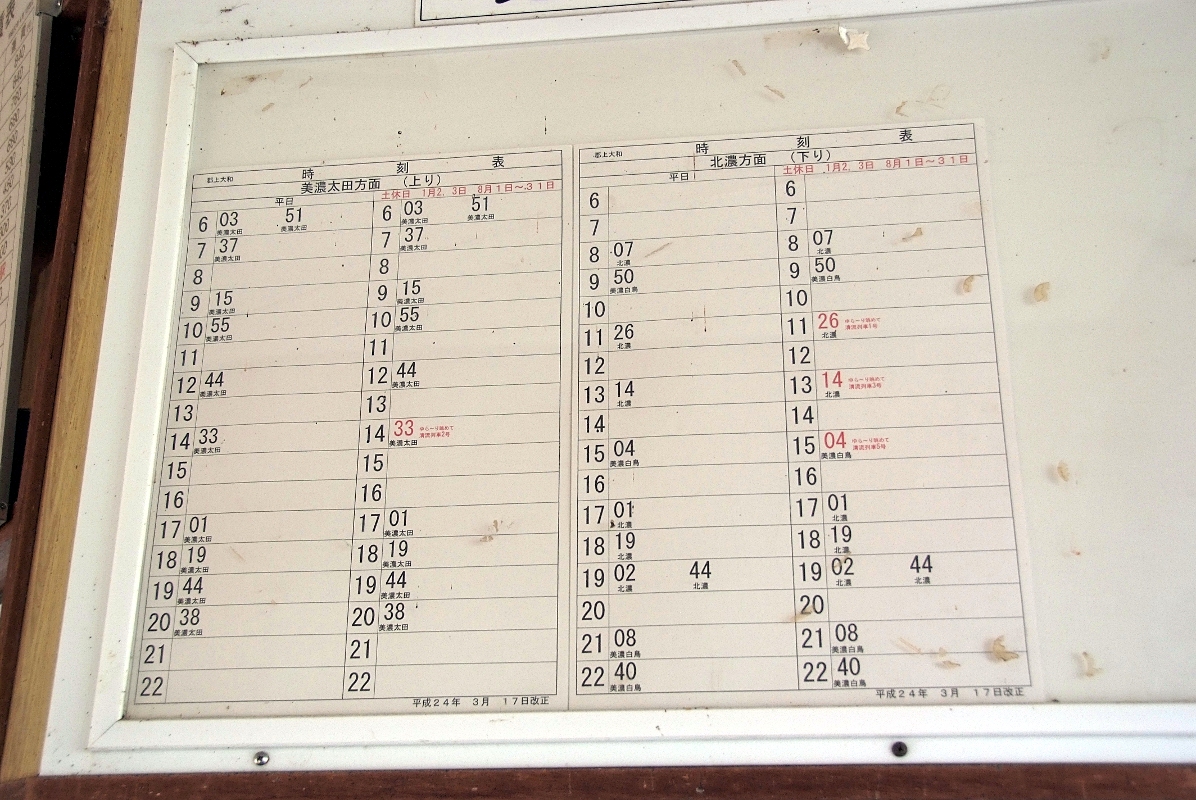 時 刻 表
郡上大和
美濃太田方面 (上り)
平日
土休日 1月2, 3日 8月1日～31日
6 03 51 6 03 51
美濃太田 美濃太田 美濃太田 美濃太田
7 37 7 37
美濃太田 美濃太田
8 8
9 15 9 15
美濃太田 美濃太田
10 55 10 55
美濃太田 美濃太田
11 11
12 44 12 44
美濃太田 美濃太田
13 13
14 33 14 33 ゆら～り眺めて
美濃太田 美濃太田 清流列車2号
15 15
16 16
17 01 17 01
美濃太田 美濃太田
18 19 18 19
美濃太田 美濃太田
19 44 19 44
美濃太田 美濃太田
20 38 20 38
美濃太田 美濃太田
21 21
22 22
平成24年 3月 17日改正
時 刻 表
郡上大和
北濃方面 (下り)
平日
土休日 1月2, 3日 8月1日～31日
6 6
7 7
8 07 8 07
北濃 北濃
9 50 9 50
美濃白鳥 美濃白鳥
10 10
11 26 11 26 ゆら～り眺めて
北濃 北濃 清流列車1号
12 12
13 14 13 14 ゆら～り眺めて
北濃 北濃 清流列車3号
14 14
15 04 15 04 ゆら～り眺めて
美濃白鳥 美濃白鳥 清流列車5号
16 16
17 01 17 01
北濃 北濃
18 19 18 19
北濃 北濃
19 02 44 19 02 44
北濃 北濃 北濃 北濃
20 20
21 08 21 08
美濃白鳥 美濃白鳥
22 40 22 40
美濃白鳥 美濃白鳥
平成24年 3月 17日改正